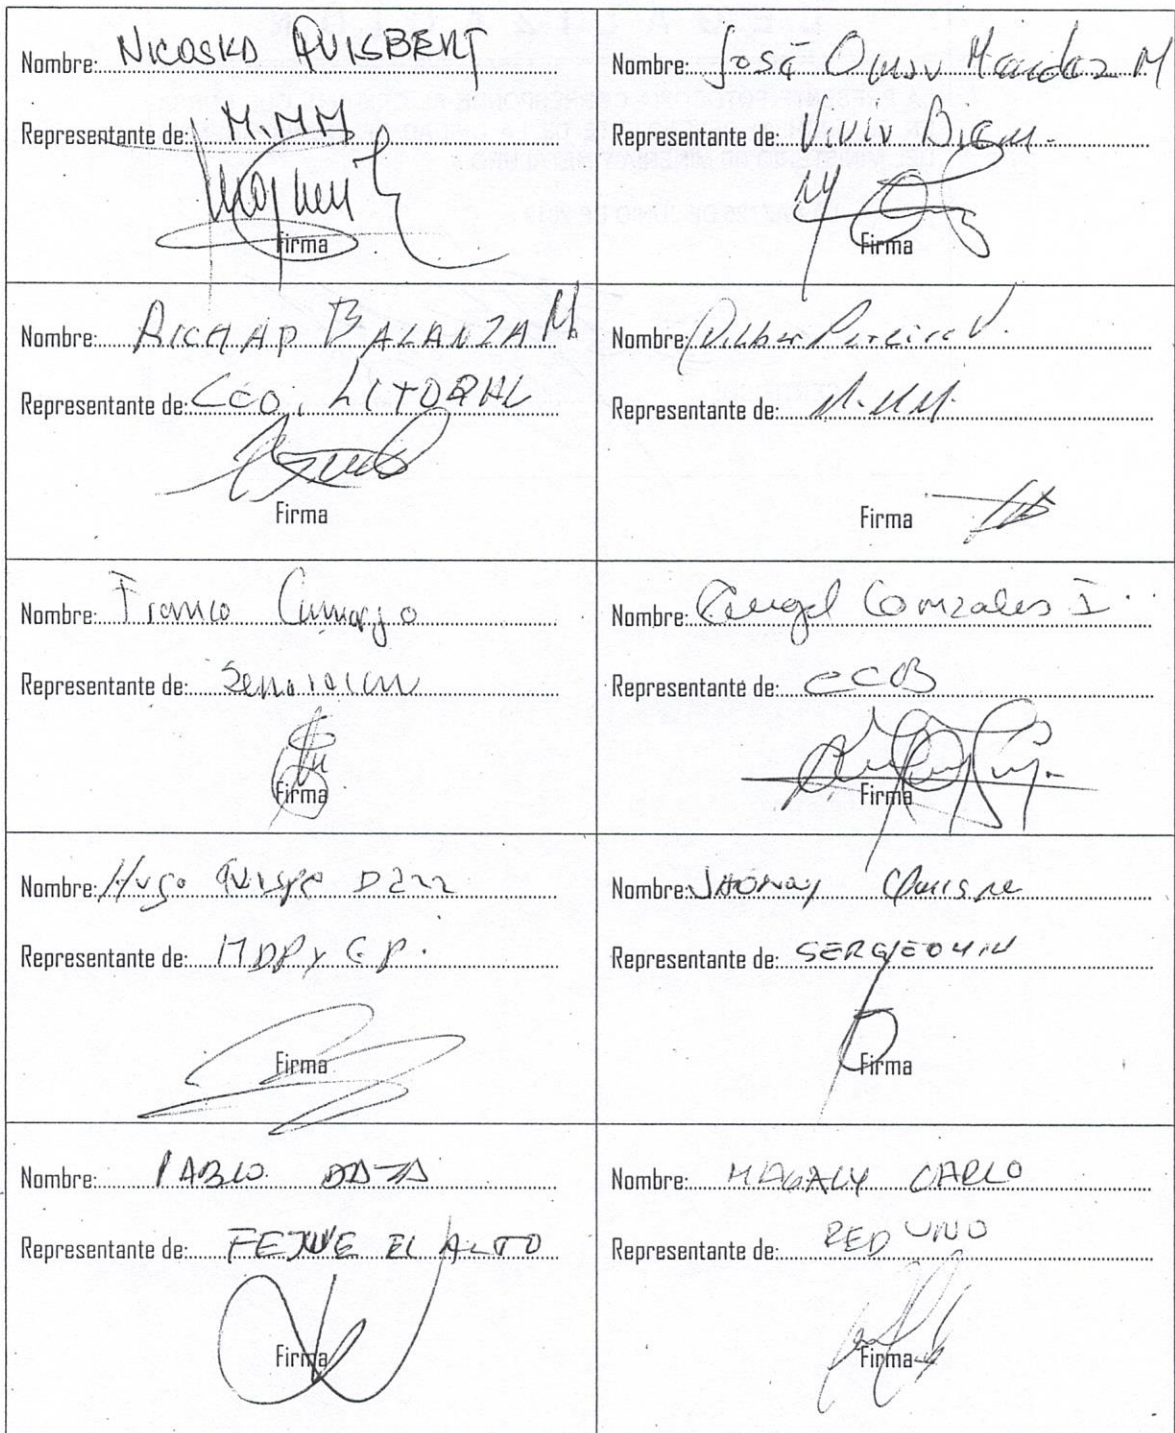 Nombre: NICOSKD QUISBERT
Representante de: M.MM
Firma
Nombre: José Omar Mendoz M
Representante de: Vivir Bien.
Firma
Nombre: RICHAD BALANZA M.
Representante de: Cco. LITORAL
Firma
Nombre: Wilber Pereira V.
Representante de: M.MM.
Firma
Nombre: Franco Camargo
Representante de:
Firma
Nombre: Angel Gonzales I.
Representante de: CCB
Firma
Nombre: Hugo Quispe
Representante de: MDPyEP.
Firma
Nombre: JHONNY Quispe
Representante de: SERGEOMIN
Firma
Nombre: PABLO
Representante de: FEJUVE EL ALTO
Firma
Nombre: MAGALY CARLO
Representante de: RED UNO
Firma